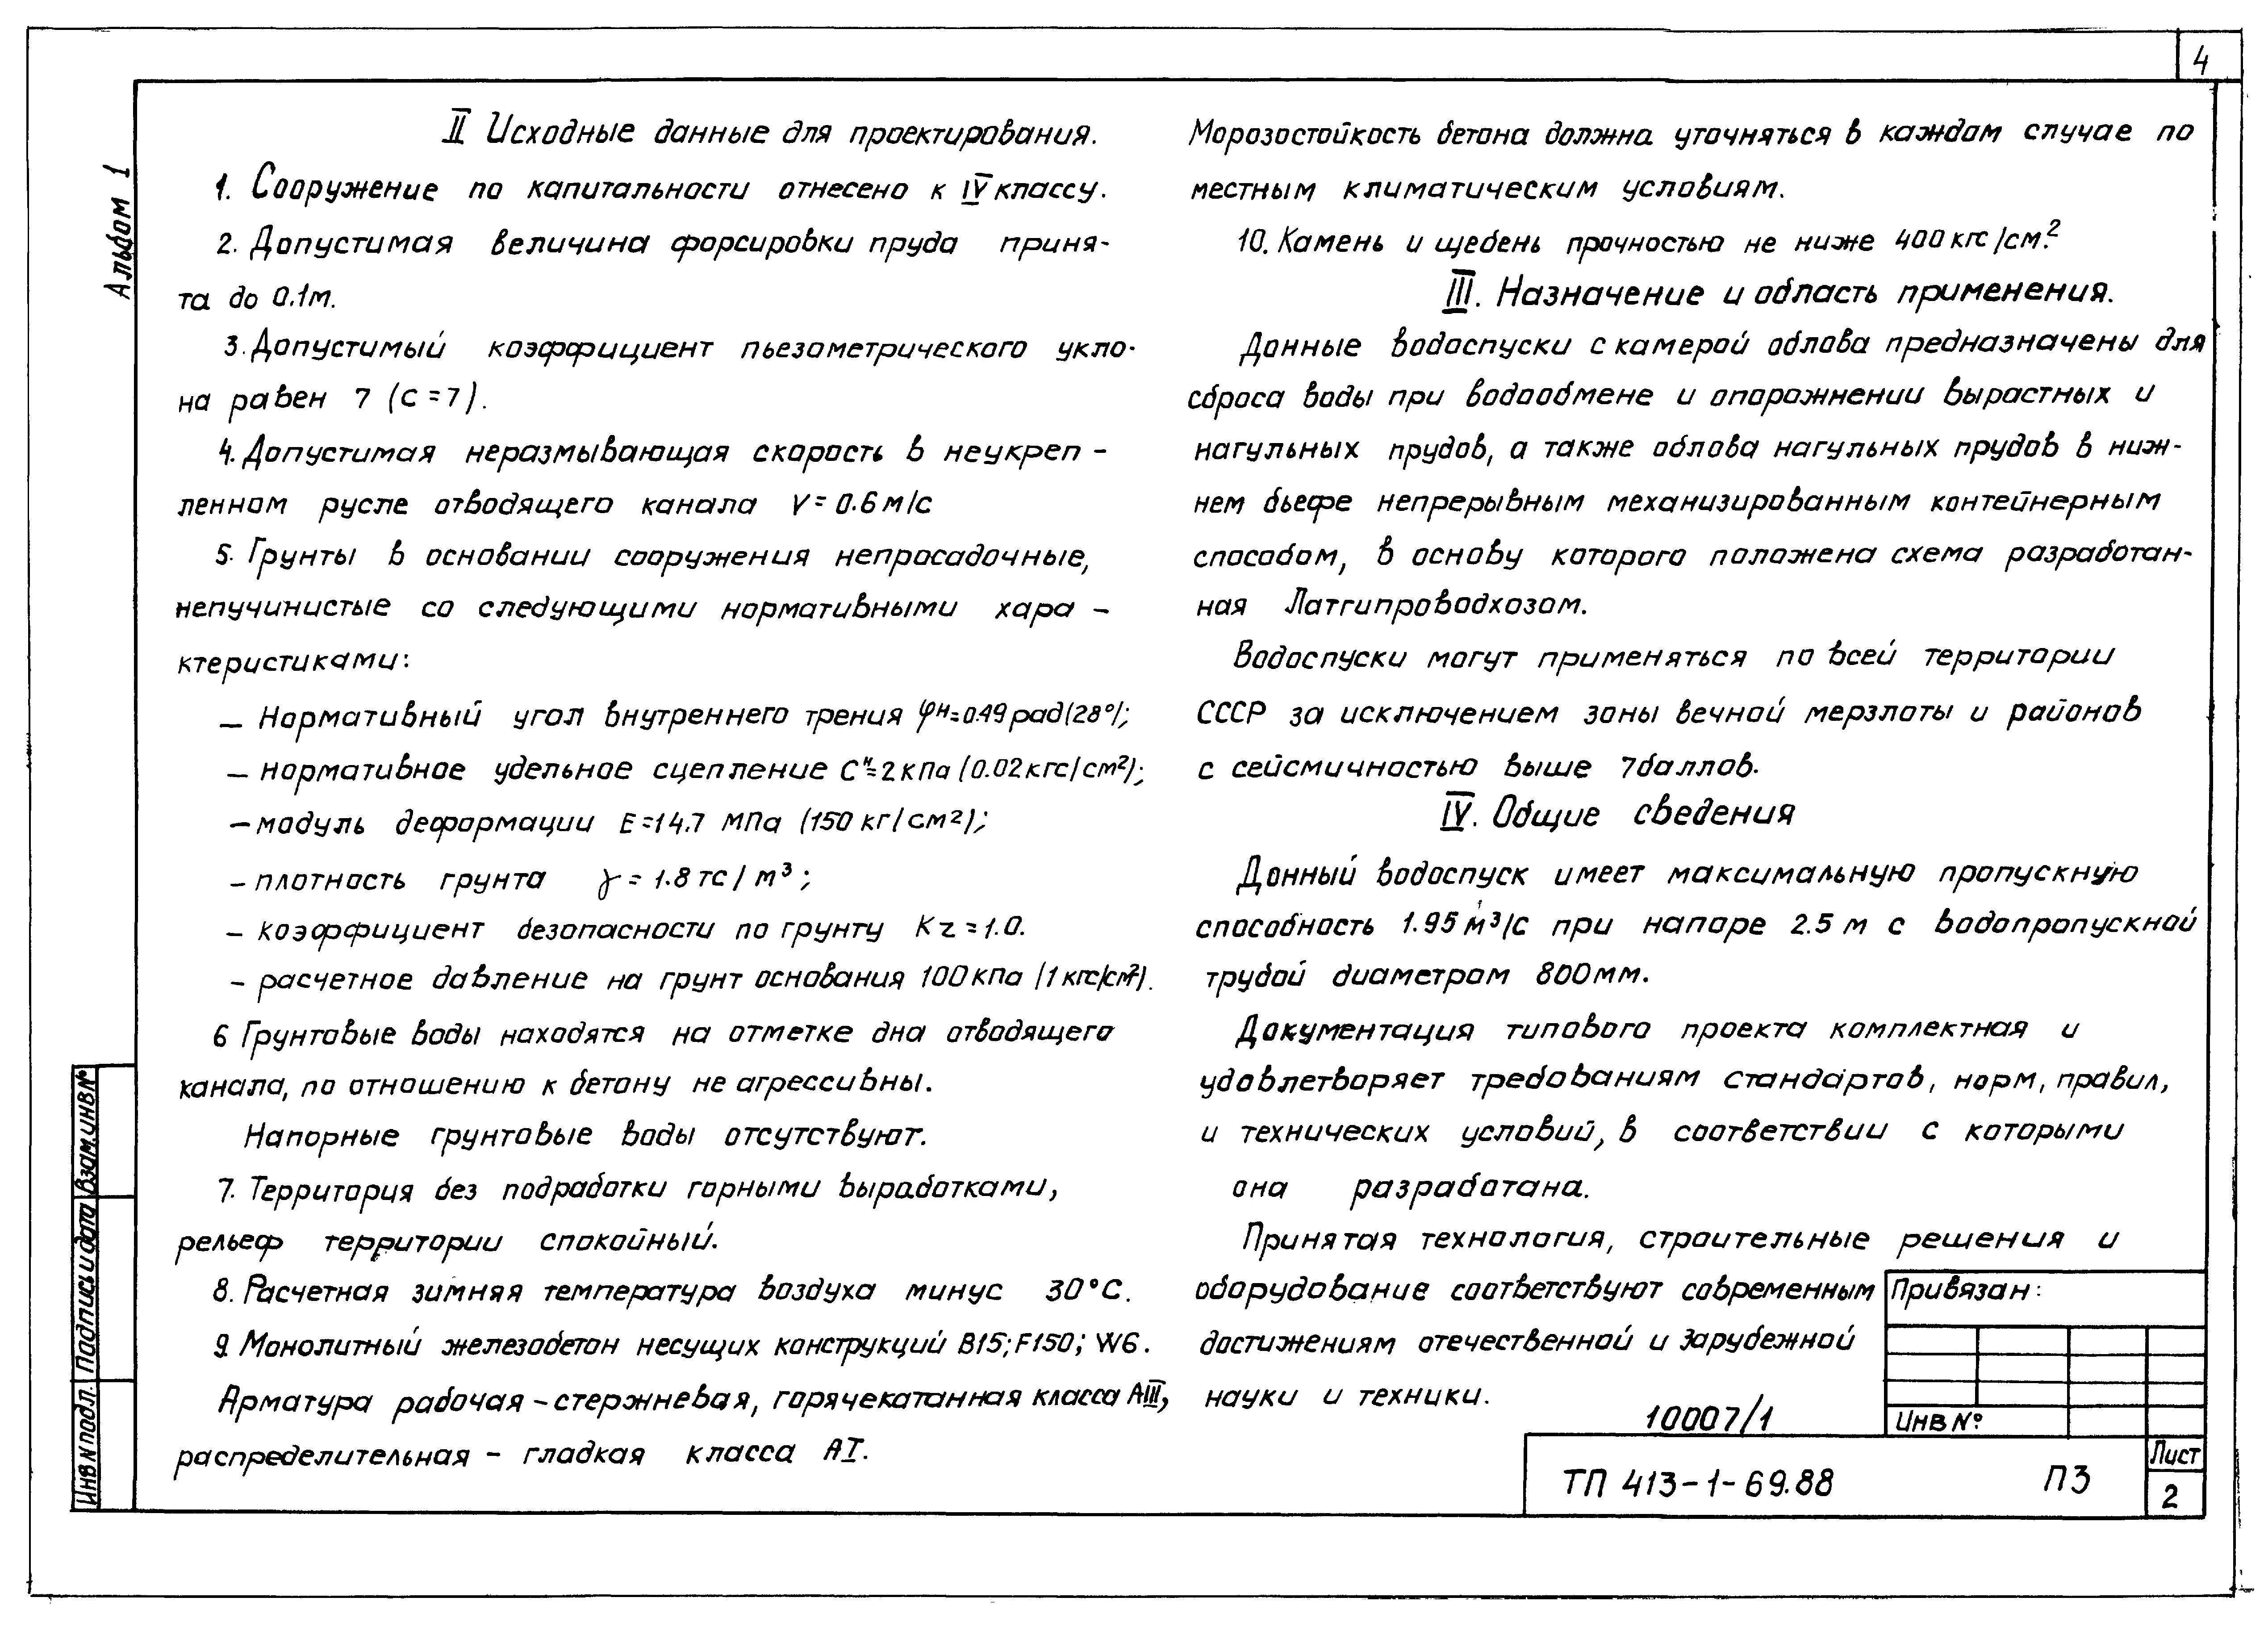 4
Альбом 1
II Исходные данные для проектирования.
1. Сооружение по капитальности отнесено к IV классу.
2. Допустимая величина форсировки пруда приня-
та до 0.1м.
3. Допустимый коэффициент пьезометрического укло-
на равен 7 (С=7).
4. Допустимая неразмывающая скорость в неукреп-
ленном русле отводящего канала V=0.6 м/с
5. Грунты в основании сооружения непросадочные,
непучинистые со следующими нормативными хара-
ктеристиками:
– Нормативный угол внутреннего трения φн=0.49 рад(28°);
– нормативное удельное сцепление Сн=2 кПа (0.02 кгс/см²);
– модуль деформации Е=14.7 МПа (150 кг/см²);
– плотность грунта γ=1.8 тс/м³;
– коэффициент безопасности по грунту Kz=1.0.
– расчетное давление на грунт основания 100 кПа (1 кгс/см²).
6 Грунтовые воды находятся на отметке дна отводящего
канала, по отношению к бетону не агрессивны.
Напорные грунтовые воды отсутствуют.
7. Территория без подработки горными выработками,
рельеф территории спокойный.
8. Расчетная зимняя температура воздуха минус 30°С.
9. Монолитный железобетон несущих конструкций В15; F150; W6.
Арматура рабочая – стержневая, горячекатанная класса АIII,
распределительная – гладкая класса АI.
Морозостойкость бетона должна уточняться в каждом случае по
местным климатическим условиям.
10. Камень и щебень прочностью не ниже 400 кгс/см².
III. Назначение и область применения.
Донные водоспуски с камерой облова предназначены для
сброса воды при водообмене и опорожнении вырастных и
нагульных прудов, а также облова нагульных прудов в ниж-
нем бьефе непрерывным механизированным контейнерным
способом, в основу которого положена схема разработан-
ная Латгипроводхозом.
Водоспуски могут применяться по всей территории
СССР за исключением зоны вечной мерзлоты и районов
с сейсмичностью выше 7баллов.
IV. Общие сведения
Донный водоспуск имеет максимальную пропускную
способность 1.95 м³/с при напоре 2.5 м с водопропускной
трубой диаметром 800мм.
Документация типового проекта комплектная и
удовлетворяет требованиям стандартов, норм, правил,
и технических условий, в соответствии с которыми
она разработана.
Принятая технология, строительные решения и
оборудование соответствуют современным
достижениям отечественной и зарубежной
науки и техники.
Привязан:
Инв №
10007/1
ТП 413-1-69.88 ПЗ
Лист
2
Взам.инв№
Подпись и дата
Инв№подл.